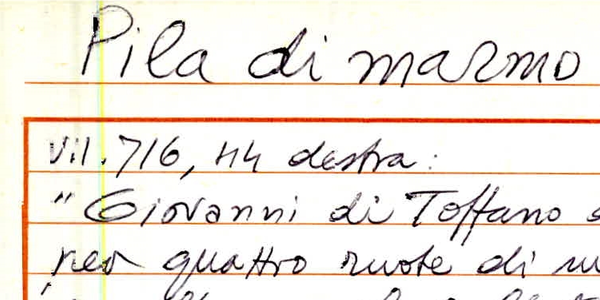 Pila di marmo
Vil. 716, 44 destra:
"Giovanni di Toffano
per quattro ruote di